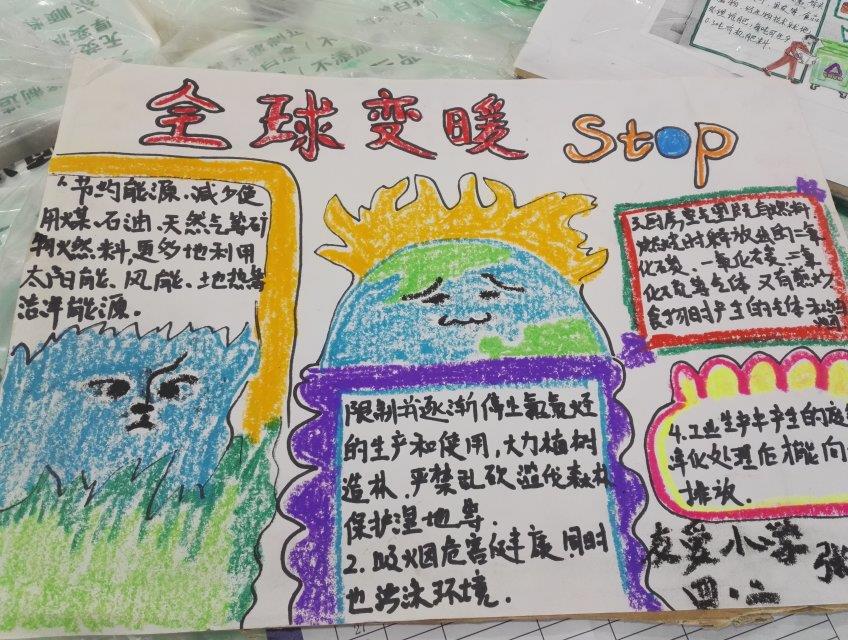 全球变暖 Stop
节约能源、减少使
用煤、石油、天然气等矿
物燃料,更多地利用
太阳能、风能、地热等
洁净能源。
限制并逐渐停止氟氯烃
的生产和使用,大力植树
造林,严禁乱砍滥伐森林
保护湿地等.
2.吸烟危害健康,同时
也污染环境.
3.厨房空气里既有燃料
燃烧时释放出的二氧
化碳、一氧化碳、二氧
化氮等气体 又有煎炒
食物时产生的气体和油
烟
4.工业生产中产生的废
净化处理后才能向
排放.
友爱小学 张
四.二